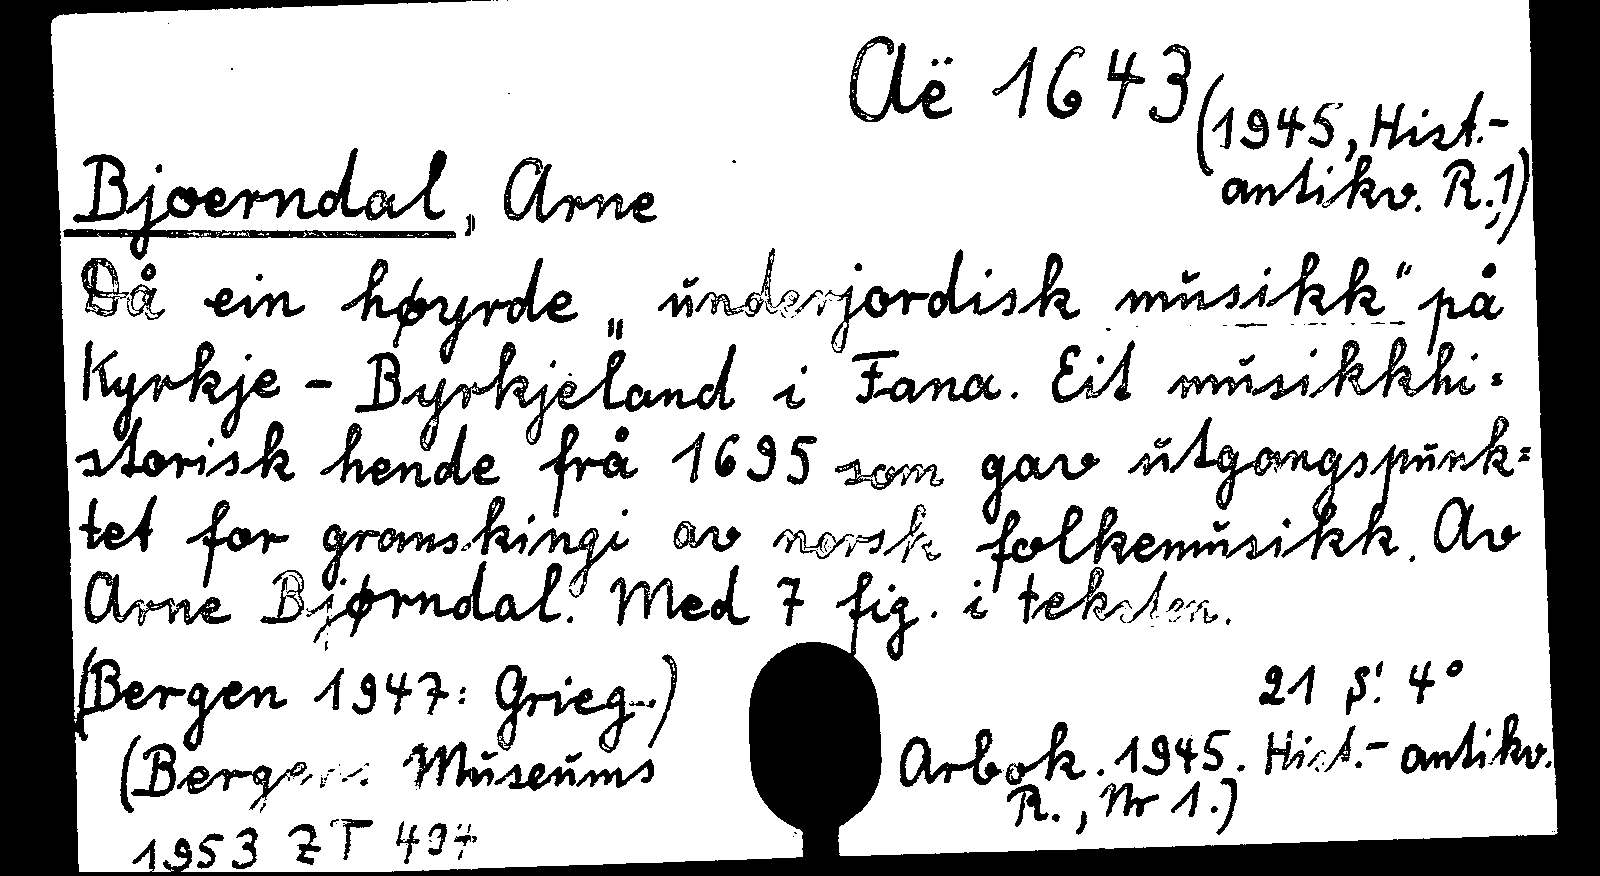 Aë 1643 (1945, Hist.-
antikv. R.,1)
Bjoerndal, Arne
Då ein høyrde „underjordisk musikk“ på
Kyrkje - Byrkjeland i Fana. Eit musikkhi=
storisk hende frå 1695 som gav utgangspunk=
tet for granskingi av norsk folkemusikk. Av
Arne Bjørndal. Med 7 fig. i teksten.
(Bergen 1947: Grieg.) 21 S. 4°
(Bergens Museums Arbok. 1945. Hist.- antikv.
R., Nr 1.)
1953 ZT 494